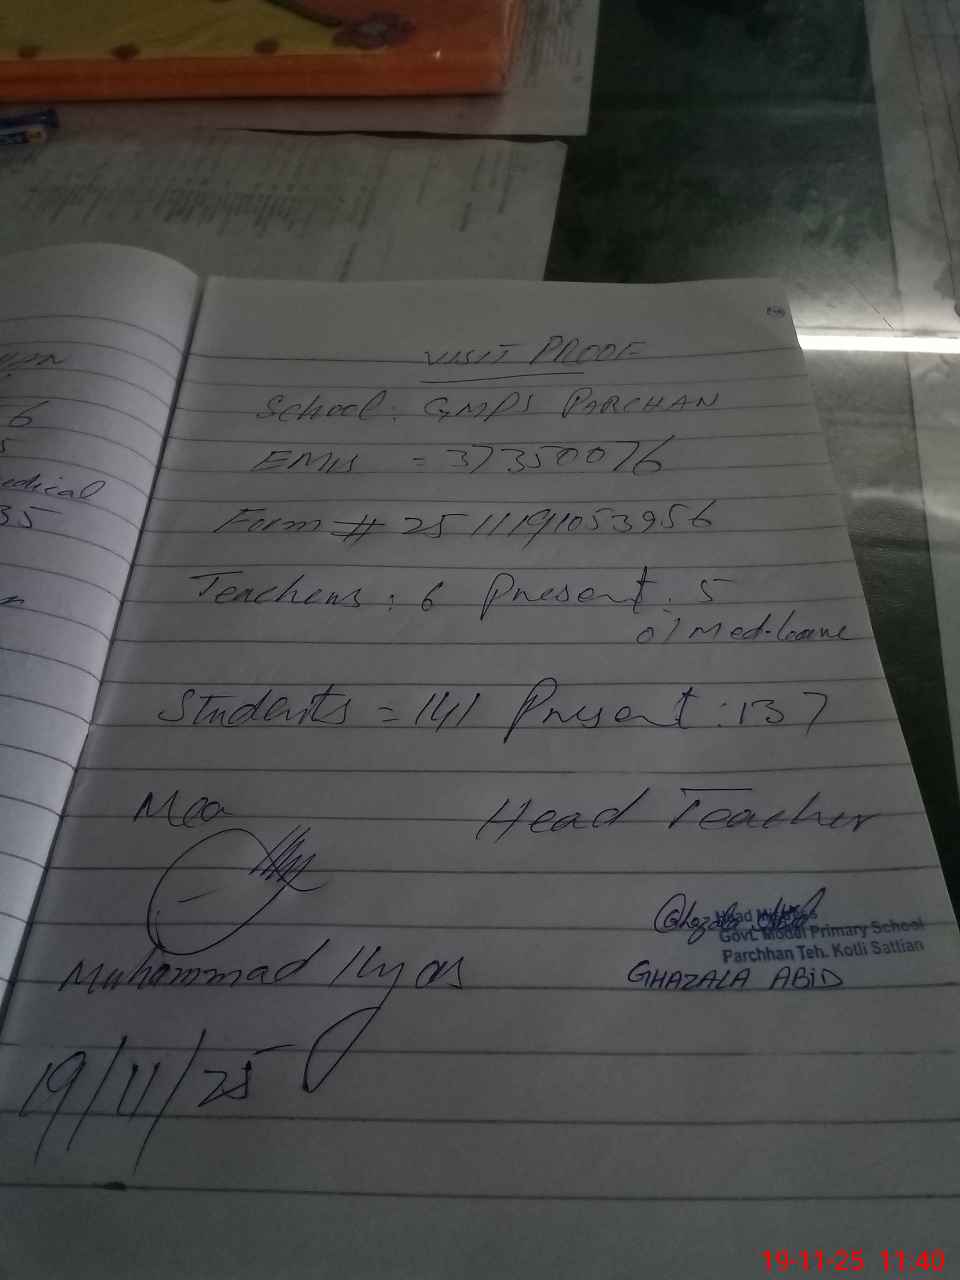 6
5
edical
35
VISIT PROOF
School: GMPS PARCHAN
EMIS = 37350076
Form # 25111191053956
Teachers: 6 Present: 5
01 Med-leave
Students = 141 Present: 137
Mea
Head Teacher
Ghazala Abid
Head Mistress
Govt. Model Primary School
Parchhan Teh. Kotli Sattian
GHAZALA ABID
Muhammad Ilyas
19/11/25
19-11-25 11:40